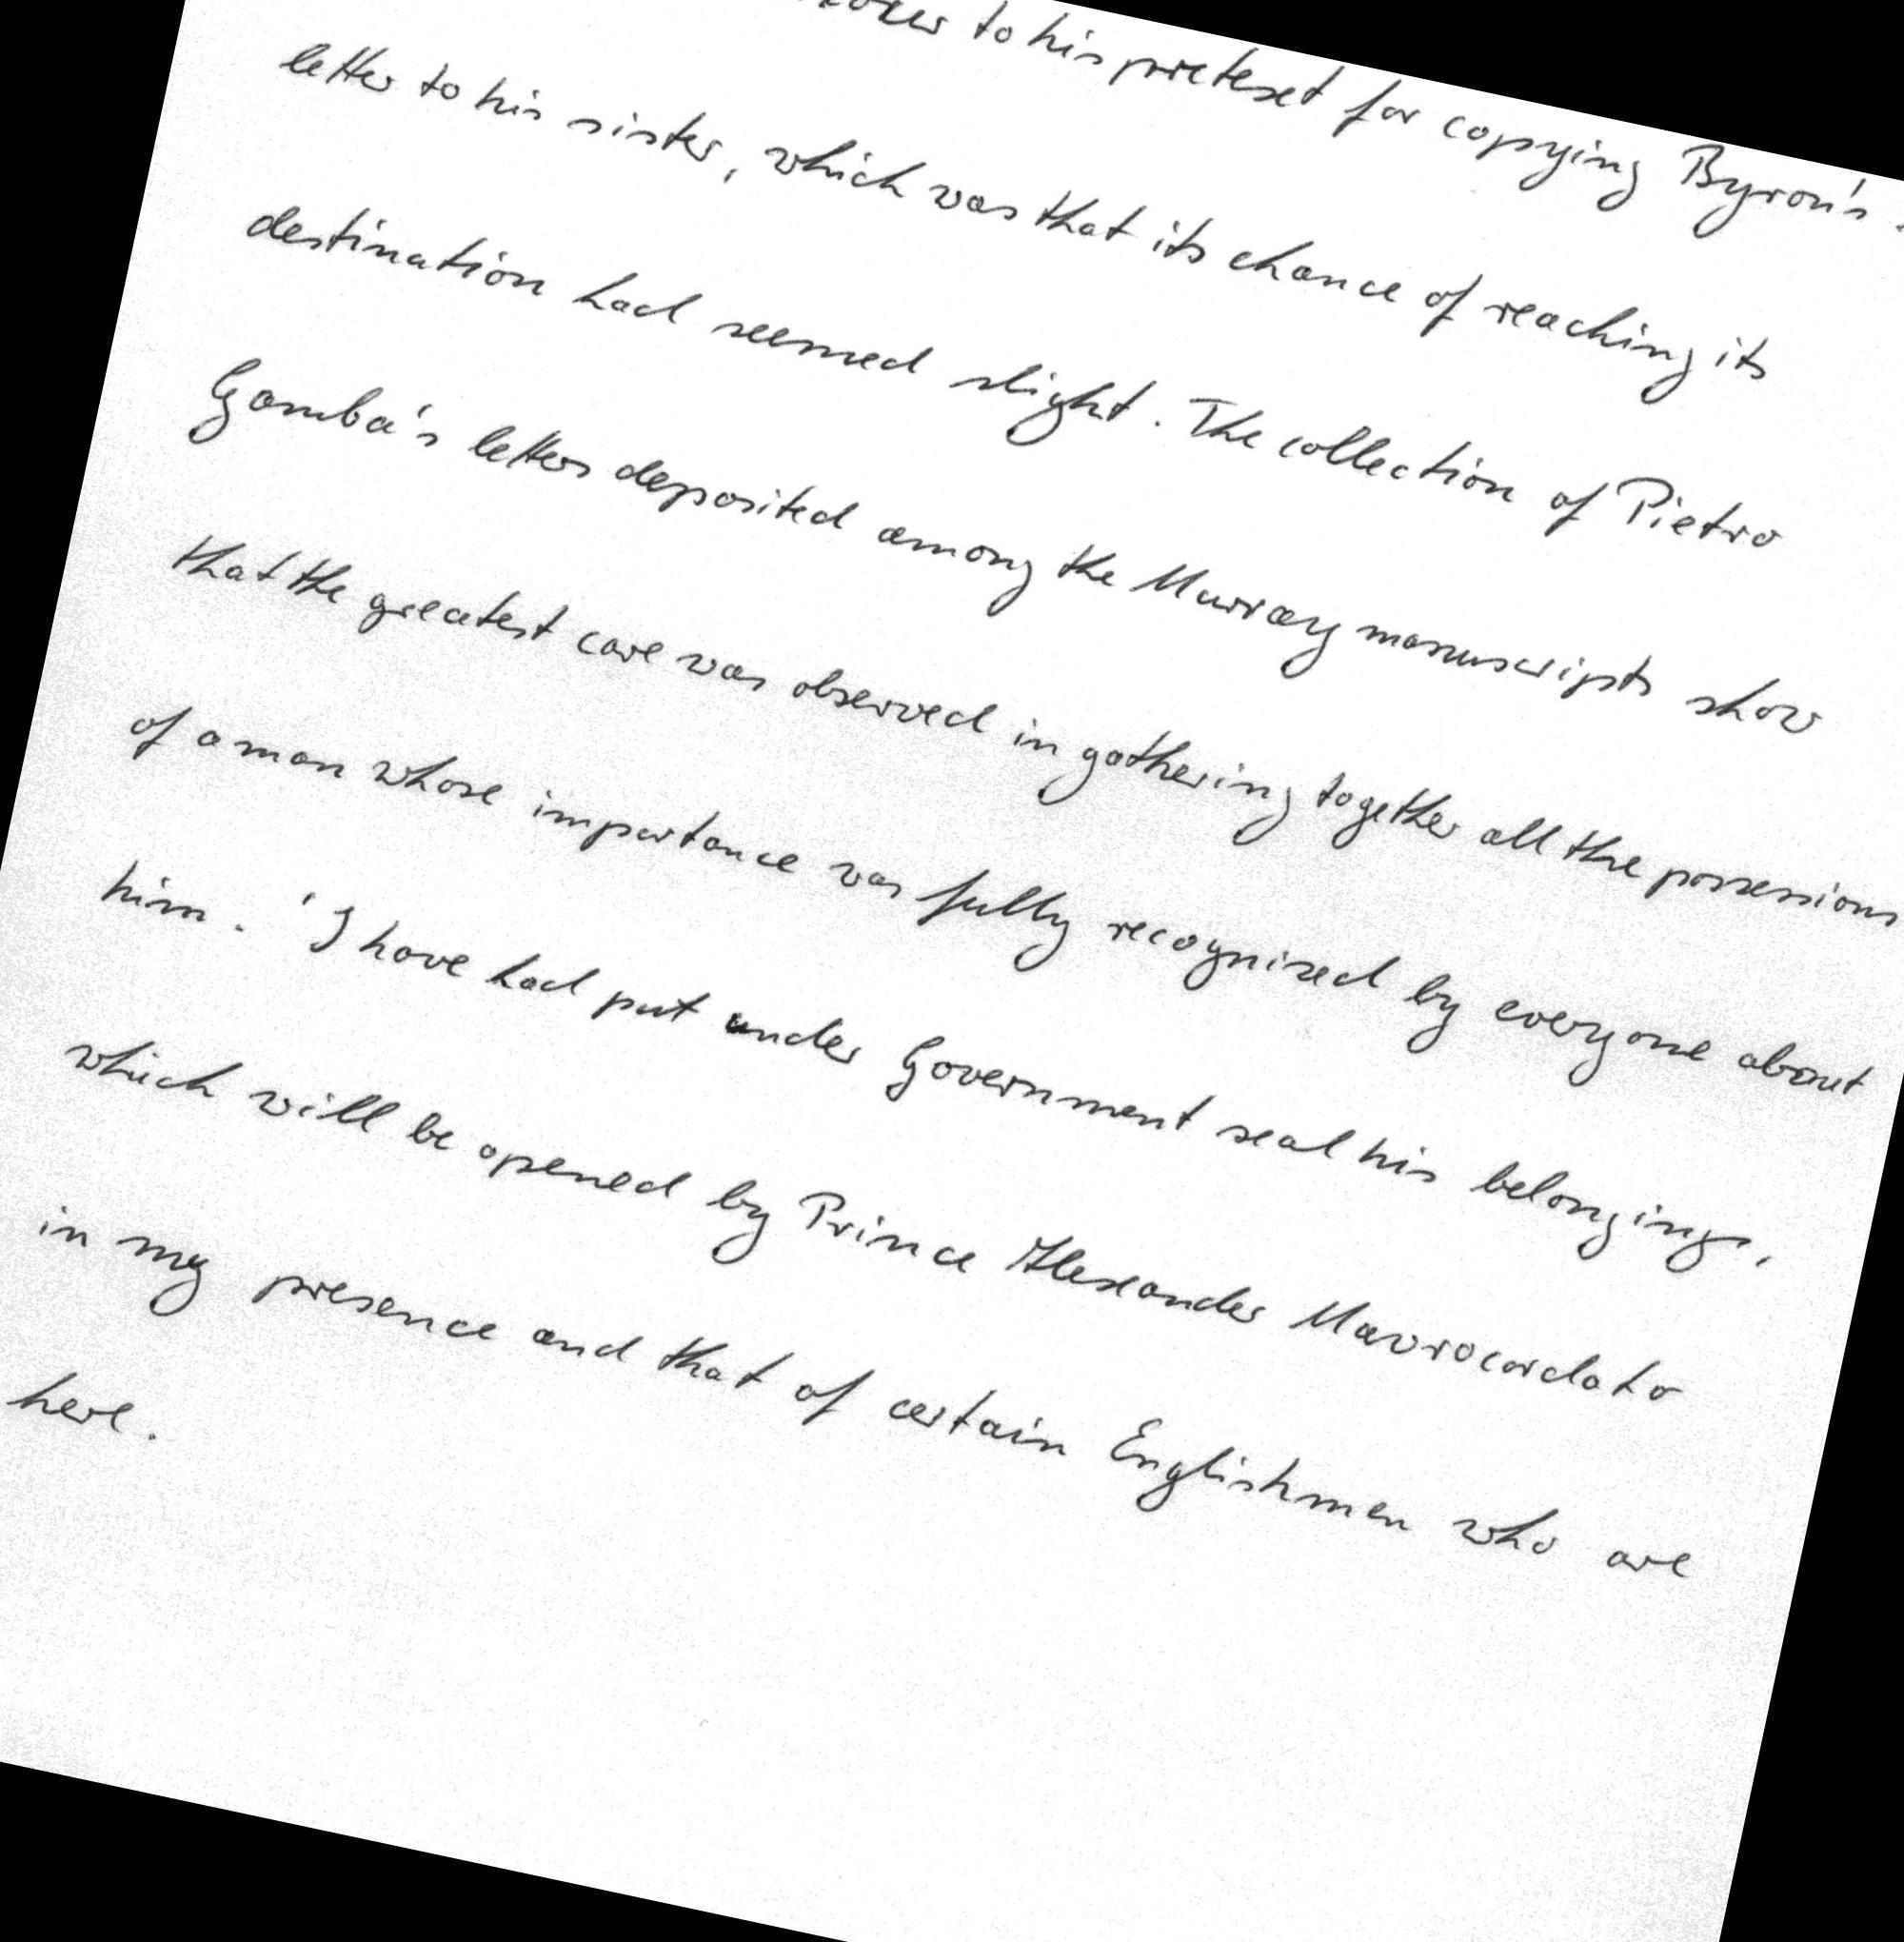 to his pretext for copying Byron's
letter to his sister, which was that its chance of reaching its
destination had seemed slight. The collection of Pietro
Gamba's letters deposited among the Murray manuscripts show
that the greatest care was observed in gathering together all the possessions
of a man whose importance was fully recognised by everyone about
him. 'I have had put under Government seal his belongings,
which will be opened by Prince Alexander Mavrocordato
in my presence and that of certain Englishmen who are
here.